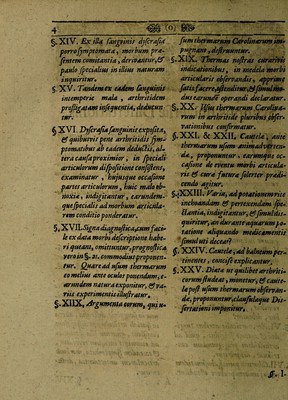 4 (0)
§. XIV. Ex illa sanguinis dyscrasia
porro symptomata, morbum præ-
sentem comitantia, derivantur, &
paulo specialius in illius naturam
inquiritur.
§. XV. Tandem ex eadem sanguinis
intemperie mala, arthritidem
prossigatam insequentia, deducun
tur.
§. XVI. Dyscrasia sanguinis exposita,
& quibusvis pene arthritidis sym-
ptomatibus ab eadem deductis, al-
tera causa proximior, in speciali
articulorum dispositione consistens,
examinatur, hujusque occasione
partes articulorum, huic malo ob-
noxiæ, indigitantur, earundem-
que specialis ad morbum articula-
rem conditio ponderatur.
§. XVII. Signa diagnostica, cum faci-
le ex data morbi descriptione habe-
ri queant, omittuntur, prognostica
vero in §. 21. commodius proponen-
tur. Quare ad usum thermarum
eo melius ante oculos ponendum, e-
arundem natura exponitur, & va-
riis experimentis illustratur.
§. XIIX. Argumenta eorum, qui u-
sum thermarum Carolinarum im-
pugnant, destruuntur.
§. XIX. Thermas nostras curativis
indicationibus, in medela morbi
articularis observandis, apprime
satisfacere, ostenditur, & simul mo-
dus earum operandi declaratur.
§. XX. Usus thermarum Carolina-
rum in arthritide pluribus obser-
vationibus confirmatur.
§. XXI. & XXII. Cautelæ, ante
thermarum usum animadverten-
dæ, proponuntur, earumque oc-
casione de eventu morbi articula-
ris & cura futura solerter prædi-
cendo agitur.
§. XXIII. Varia, ad potationem rite
inchoandam & pertexendam spe-
ctantia, indigitantur, & simul dis-
quiritur, an durante aquarum po-
tatione aliquando medicamentis
simul uti deceat?
§. XXIV. Cautelæ, ad balneum per-
tinentes, concise explicantur.
§. XXV. Diæta ut quilibet arthriti-
corum studeat, monetur, & caute-
læ post usum thermarum observan-
dæ, proponuntur, clausulaque Dis-
sertationi imponitur.
§. I.